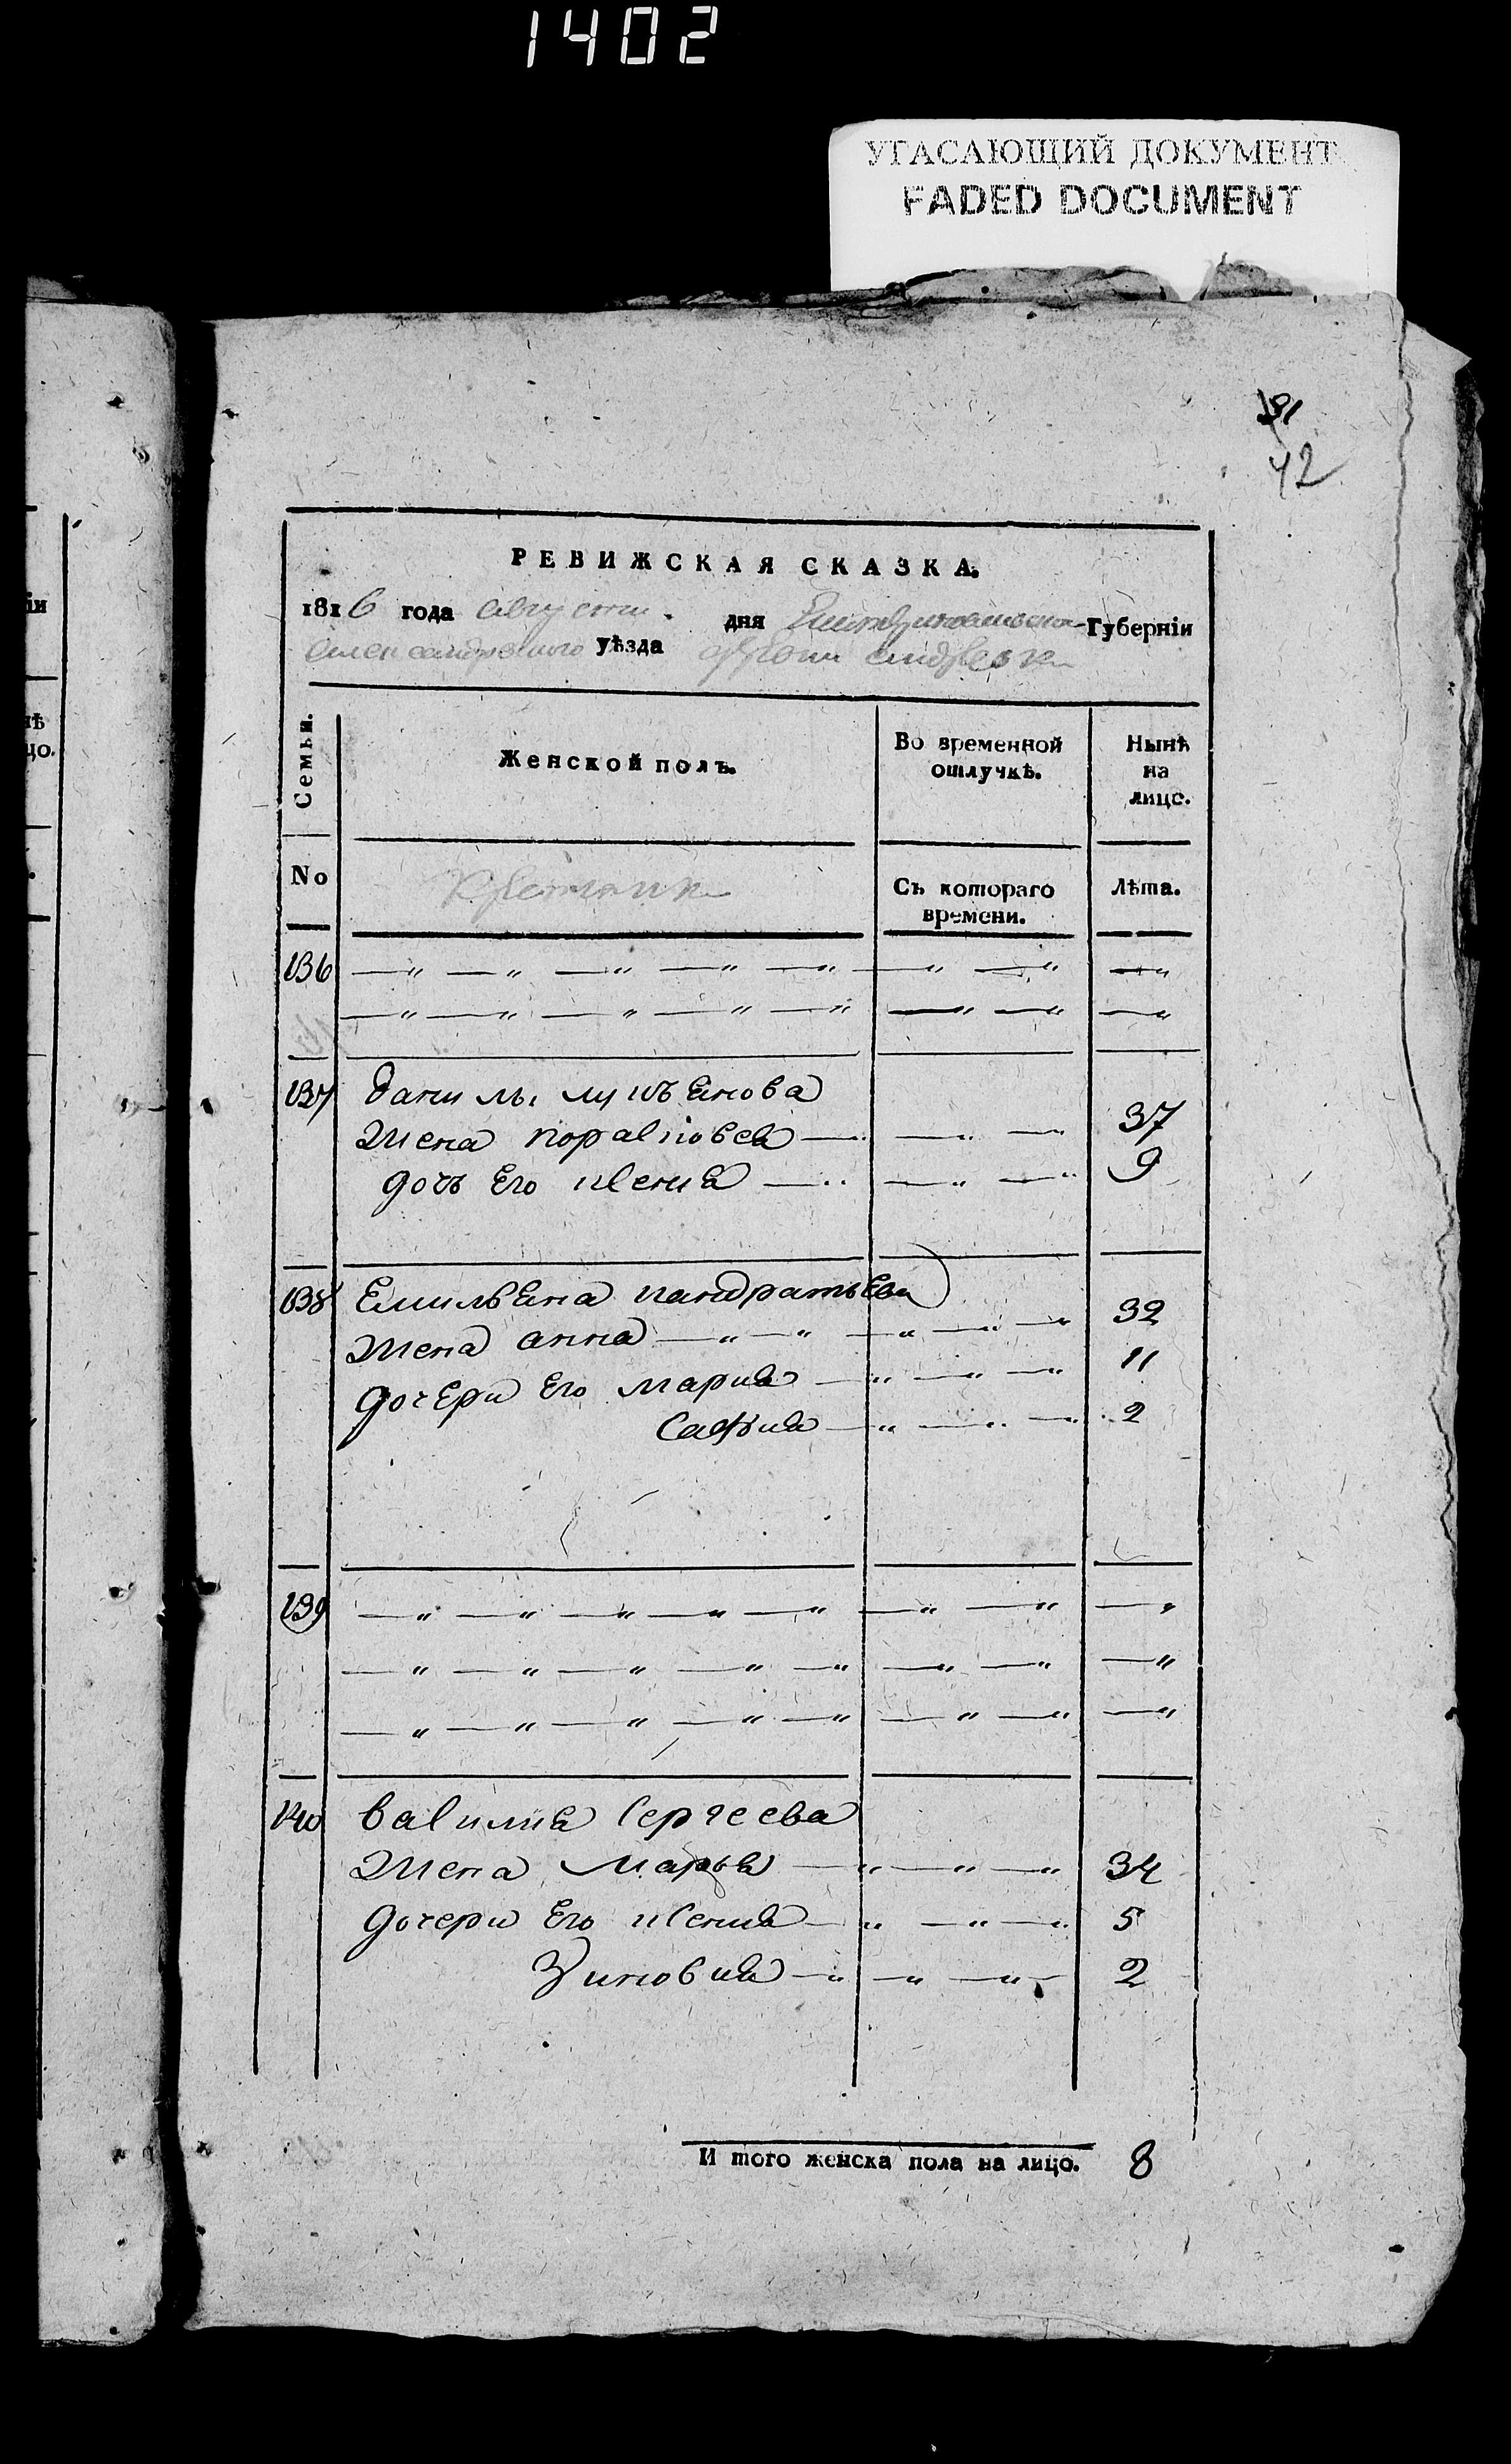 1402
УГАСАЮЩИЙ ДОКУМЕНТ
FADED DOCUMENT
42
РЕВИЖСКАЯ СКАЗКА.
1816 года августа дня Екатеринославской Губерніи
Александровского уѣзда
Семьи.
Женской полъ.
Во временной отлучкѣ.
Нынѣ на лицо.
No
Съ котораго времени.
Лѣта.
136 —„ —„ —„ —„ —„ —„ —„ —„
—„ —„ —„ —„ —„ —„ —„ —„
137 данилы лукъянова
жена —„ —„ —„ 37
дочь Его ксения —„ —„ —„ 9
138 Емильяна кандратьева
жена анна —„ —„ —„ —„ —„ 32
дочери Его мария —„ —„ —„ 11
Сафия —„ —„ —„ 2
139 —„ —„ —„ —„ —„ —„ —„ —„
—„ —„ —„ —„ —„ —„ —„ —„
—„ —„ —„ —„ —„ —„ —„ —„
140 василия Сергеева
жена марья —„ —„ —„ 34
дочери Его ксения —„ —„ —„ 5
Зиновия —„ —„ —„ 2
И того женска пола на лицо. 8